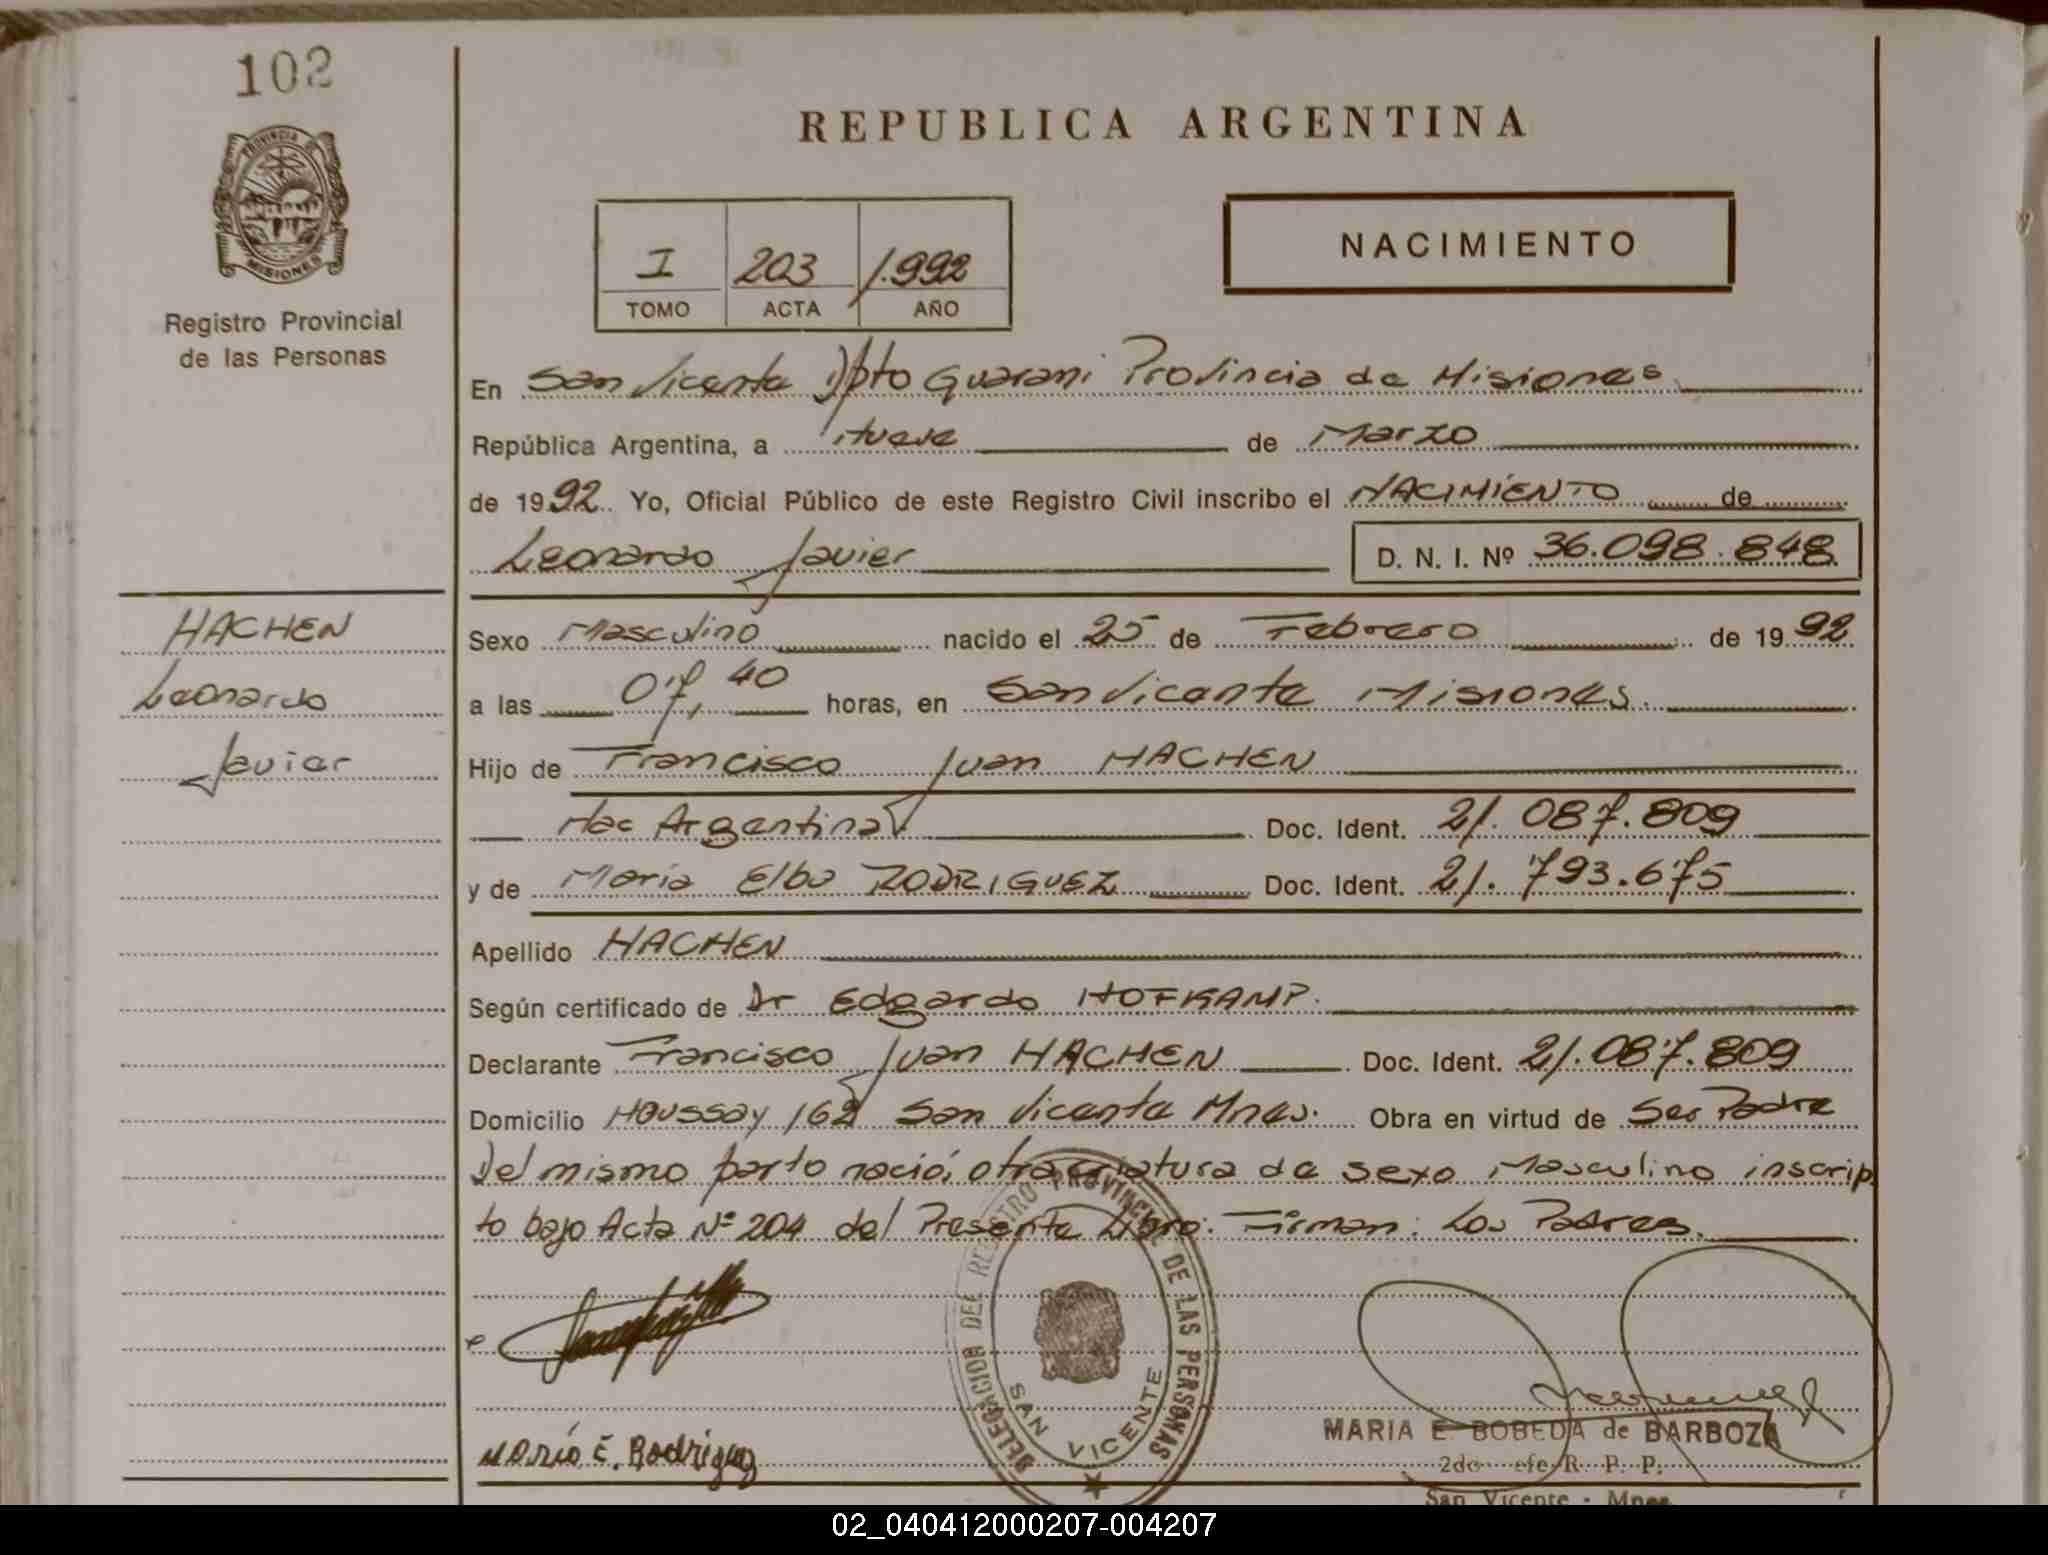 102
REPUBLICA ARGENTINA
PROVINCIA DE
MISIONES
Registro Provincial
de las Personas
I 203 1.992
TOMO ACTA AÑO
NACIMIENTO
En San Vicente Dpto Guarani Provincia de Misiones
República Argentina, a Nueve de Marzo
de 1992 Yo, Oficial Público de este Registro Civil inscribo el NACIMIENTO de
Leonardo Javier D. N. I. Nº 36.098.848
HACHEN
Leonardo
Javier
Sexo Masculino nacido el 25 de Febrero de 1992
a las 07,40 horas, en San Vicente Misiones.
Hijo de Francisco Juan HACHEN
Nac Argentina Doc. Ident. 21.087.809
y de Maria Elba RODRIGUEZ Doc. Ident. 21.793.675
Apellido HACHEN
Según certificado de Dr Edgardo HOFKAMP.
Declarante Francisco Juan HACHEN Doc. Ident. 21.087.809
Domicilio Houssay 162 San Vicente Mnes. Obra en virtud de Ser Padre
Del mismo parto nació, otra criatura de sexo Masculino inscrip
to bajo Acta Nº 204 del Presente Libro. Firman: Los Padres.
DELEGACION DEL REGISTRO PROVINCIAL DE LAS PERSONAS
SAN VICENTE
Maria E. Rodriguez
MARIA E BOBEDA de BARBOZA
2do efe R. P. P.
San Vicente - Mnes
02_040412000207-004207